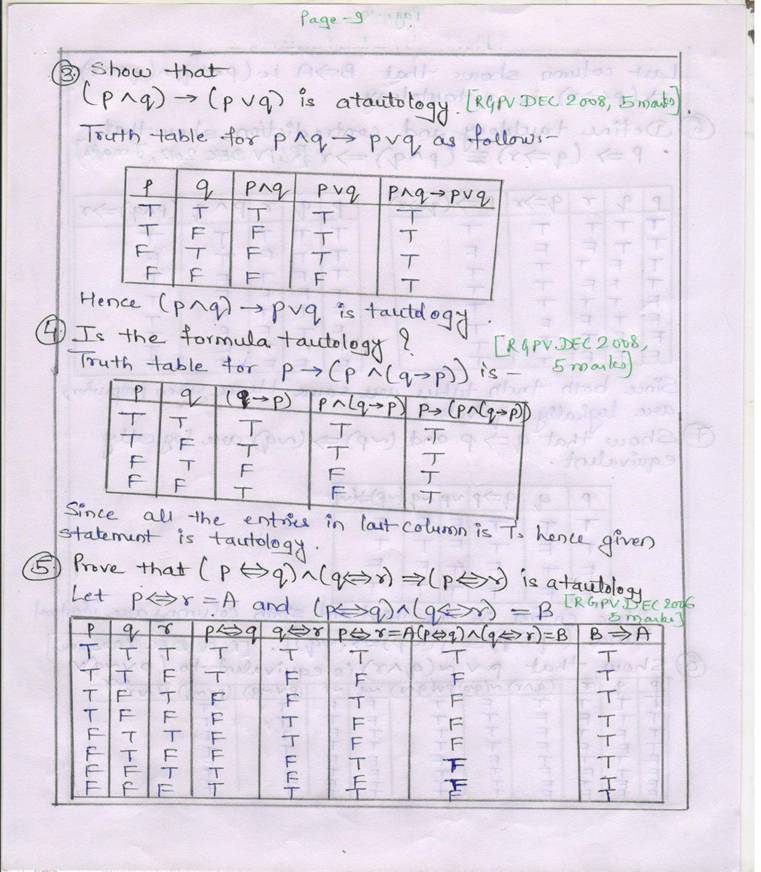 Page-9
③ Show that
(p∧q) → (p∨q) is a tautology. [RGPV DEC 2008, 5 marks].
Truth table for p∧q → p∨q as follows-
p q p∧q p∨q p∧q→p∨q
T T T T T
T F F T T
F T F T T
F F F F T
Hence (p∧q) → p∨q is tautology.
④ Is the formula tautology? [RGPV.DEC 2008,
Truth table for p→(p∧(q→p)) is- 5 marks]
p q (q→p) p∧(q→p) p→(p∧(q→p))
T T T T T
T F T T T
F T F F T
F F T F T
Since all the entries in last column is T, hence given
statement is tautology.
⑤ Prove that (p⇔q)∧(q⇔r)⇒(p⇔r) is a tautology
Let p⇔r=A and (p⇔q)∧(q⇔r)=B [RGPV.DEC 2006
5 marks]
p q r p⇔q q⇔r p⇔r=A (p⇔q)∧(q⇔r)=B B⇒A
T T T T T T T T
T T F T F F F T
T F T F F T F T
T F F F T F F T
F T T F T F F T
F T F F F T F T
F F T T F F F T
F F F T T T F T